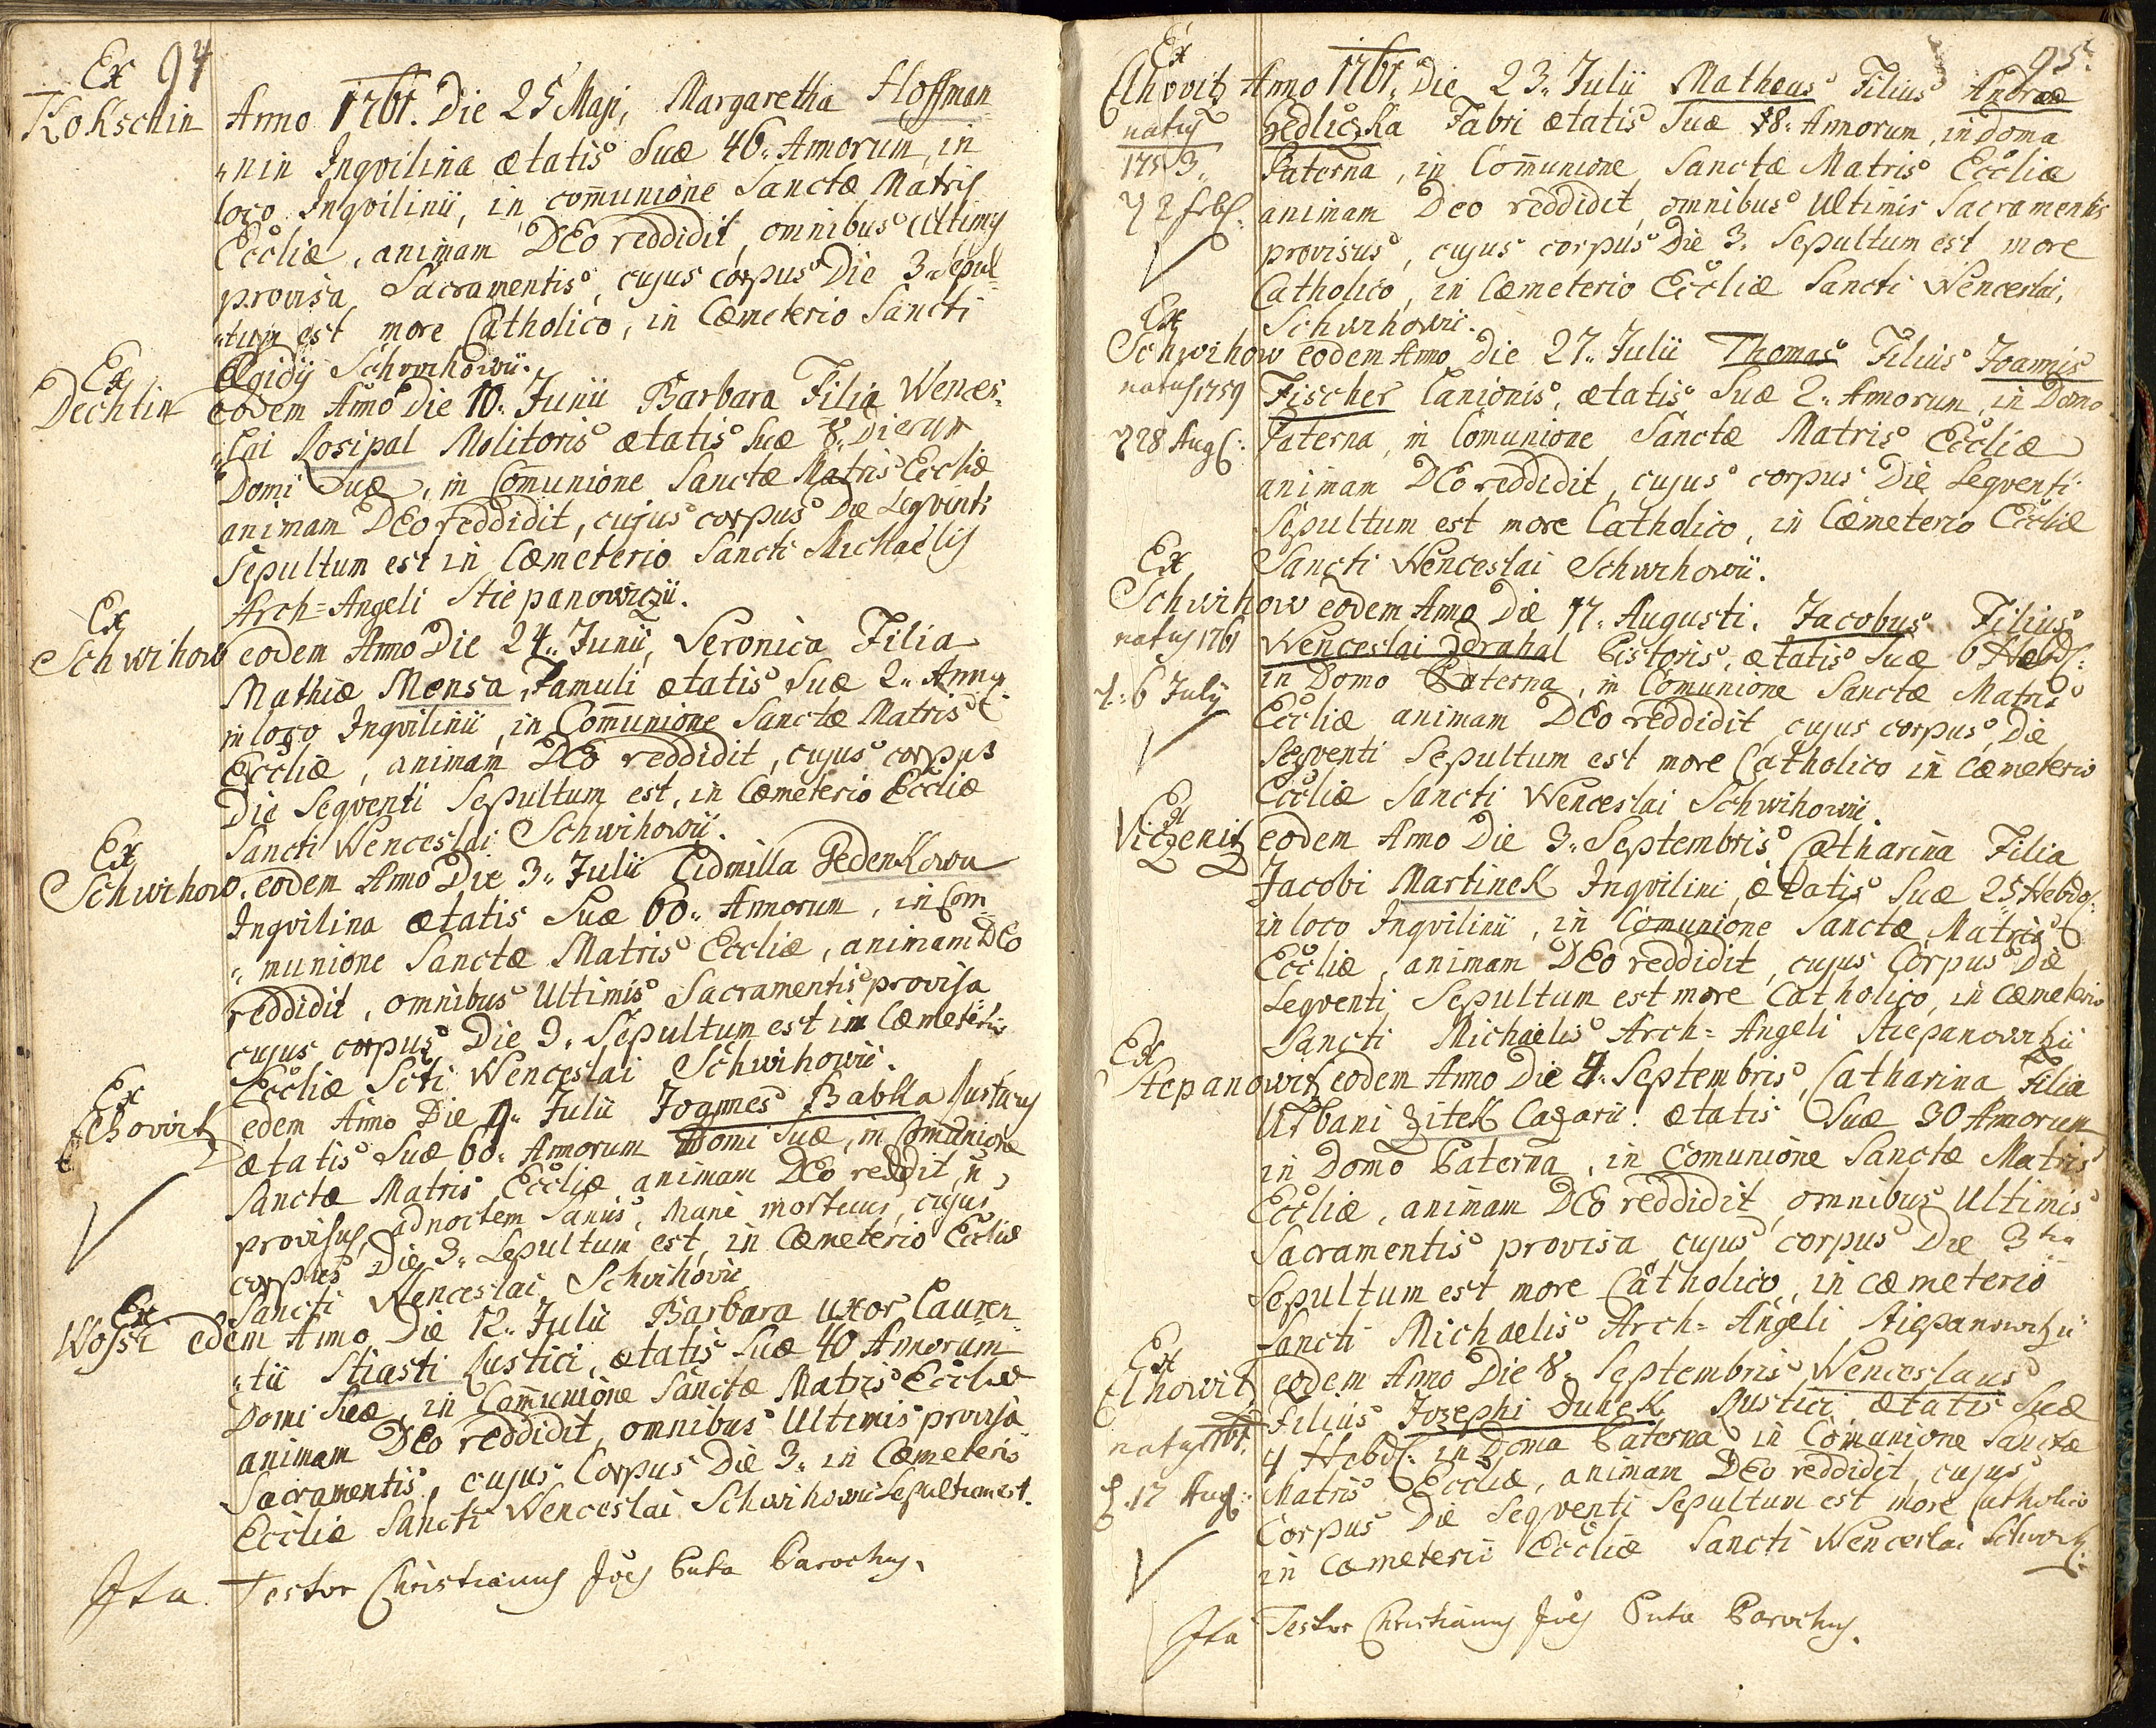 94
Ex
Kokschin Anno 1761. Die 25 Maji, Margaretha Hoffman
„nin Inqvilina ætatis Suæ 46„ Annorum, in
loco Inqvilinii, in com̄unione Sanctæ Matris
Eccliæ, animam DEo reddidit, omnibus Ultimis
provisa Sacramentis, cujus corpus Die 3„ Sepul
„tum est more Catholico, in Cæmeterio Sancti
Ægidij Schwihowii.
Ex
Dechtin eodem Año Die 10„ Junii Barbara Filia Wences„
„lai Rosipal Molitoris ætatis Suæ 8„ Dierum
Domi Suæ, in Com̄unione Sanctæ Matris Eccliæ
animam DEo reddidit, cujus corpus Die Seqventi
Sepultum est in Cæmeterio Sancti Michaëlis
Arch=Angeli Stiepanowiczii.
Ex
Schwihow eodem Anno Die 24„ Junii, Veronica Filia
Mathiæ Mensa, Famuli ætatis Suæ 2„ Annor
in loco Inqvilinii, in Com̄unione Sanctæ Matris
Eccliæ, animam DEo reddidit, cujus corpus
Die Seqventi Sepultum est, in Cæmeterio Eccliæ
Sancti Wenceslai Schwihowii.
Ex
Schwihow. eodem Anno Die 3„ Julii Lidmilla Pedenkowa
Inqvilina ætatis Suæ 60„ Annorum, in Com
„munione Sanctæ Matris Eccliæ, animam DEo
reddidit, omnibus Ultimis Sacramentis provisa
cujus corpus Die 3„ Sepultum est in Cæmeterio
Eccliæ Scti Wenceslai Schwihowii.
Ex
Lhovitz edem Anno Die 9„ Julii Joannes Babka Rusticus
ætatis Suæ 60„ Annorum Domi Suæ, in Comunione
Sanctæ Matris Eccliæ animam DEo reddit, ñ
provisus, ad noctem Sanus, Mane mortuus, cujus
corpus Die 3„ Sepultum est, in Cæmeterio Eccliæ
Sancti Wenceslai Schwihovii
Ex
Wossi edem Anno Die 12„ Julii Barbara uxor Lauren
„tii Stiasti Rustici, ætatis Suæ 40 Annorum
Domi Suæ, in Com̄unione Sanctæ Matris Eccliæ
animam DEo reddidit, omnibus Ultimis provisa
Sacramentis, cujus Corpus Die 3„ in Cæmeterio
Eccliæ Sancti Wenceslai Schwihowii Sepultum est.
Ita Testor Christianus Joes Puta Parochus.
95.
Ex
Lhovitz Anno 1761. Die 23„ Julii Matheus Filius Andreæ
natus Sedliczka Fabri ætatis Suæ 8„ Annorum, in doma
1753„ Paterna, in Com̄unione Sanctæ Matris Eccliæ
animam Deo reddidit, omnibus Ultimis Sacramentis
provisus, cujus corpus Die 3„ Sepultum est more
Catholico, in Cæmeterio Eccliæ Sancti Wenceslai,
Schwihowii.
Ex
Schwihow eodem Anno Die 27„ Julii Thomas Filius Joannis
natus 1759 Fischer Lanionis, ætatis Suæ 2„ Annorum, in Domo
28 Aug: Paterna, in Comunione Sanctæ Matris Eccliæ
animam DEo reddidit, cujus corpus Die Seqventi
Sepultum est more Catholico, in Cæmeterio Eccliæ
Sancti Wenceslai Schwihowii.
Ex
Schwihow eodem Anno Die 17„ Augusti. Jacobus Filius
natus 1761 Wenceslai Zdrahal Pistoris, ætatis Suæ 6 Hebd:
6 July in Domo Paterna, in Comunione Sanctæ Matris
Eccliæ animam DEo reddidit, cujus corpus Die
Seqventi Sepultum est more Catholico in Cæmeterio
Eccliæ Sancti Wenceslai Schwihowii.
Ex
Viczenitz eodem Anno Die 3„ Septembris Catharina Filia
Jacobi Martinek Inqvilini, ætatis Suæ 25 Hebdo:
in loco Inqvilinii, in Comunione Sanctæ Matris
Eccliæ, animam DEo reddidit, cujus Corpus Die
Seqventi Sepultum est more Catholico, in Cæmeterio
Sancti Michaëlis Arch=Angeli Stiepanowitzii
Ex
Stepanowitz eodem Anno Die 4„ Septembris, Catharina Filia
Urbani Zitek Casarii. ætatis Suæ 30 Annorum
in Domo Paterna, in Comunione Sanctæ Matris
Eccliæ, animam DEo reddidit, omnibus Ultimis
Sacramentis provisa cujus corpus Die 3tia
Sepultum est more Catholico, in cæmeterio
Sancti Michaelis Arch=Angeli Stiepanowitzii
Ex
Lhowitz eodem Anno Die 8„ Septembris Wenceslaus
Filius Josephi Duhek Rustici ætatis Suæ
natus 1761. 4 Hebd: in Doma Paterna in Comunione Sanctæ
17 Aug: Matris Eccliæ, animam DEo reddidit, cujus
Corpus Die Seqventi Sepultum est more Catholico
in Cæmeterii Eccliæ Sancti Wenceslai Schwih:
Ita Testor Christianus Joes Puta Parochus.